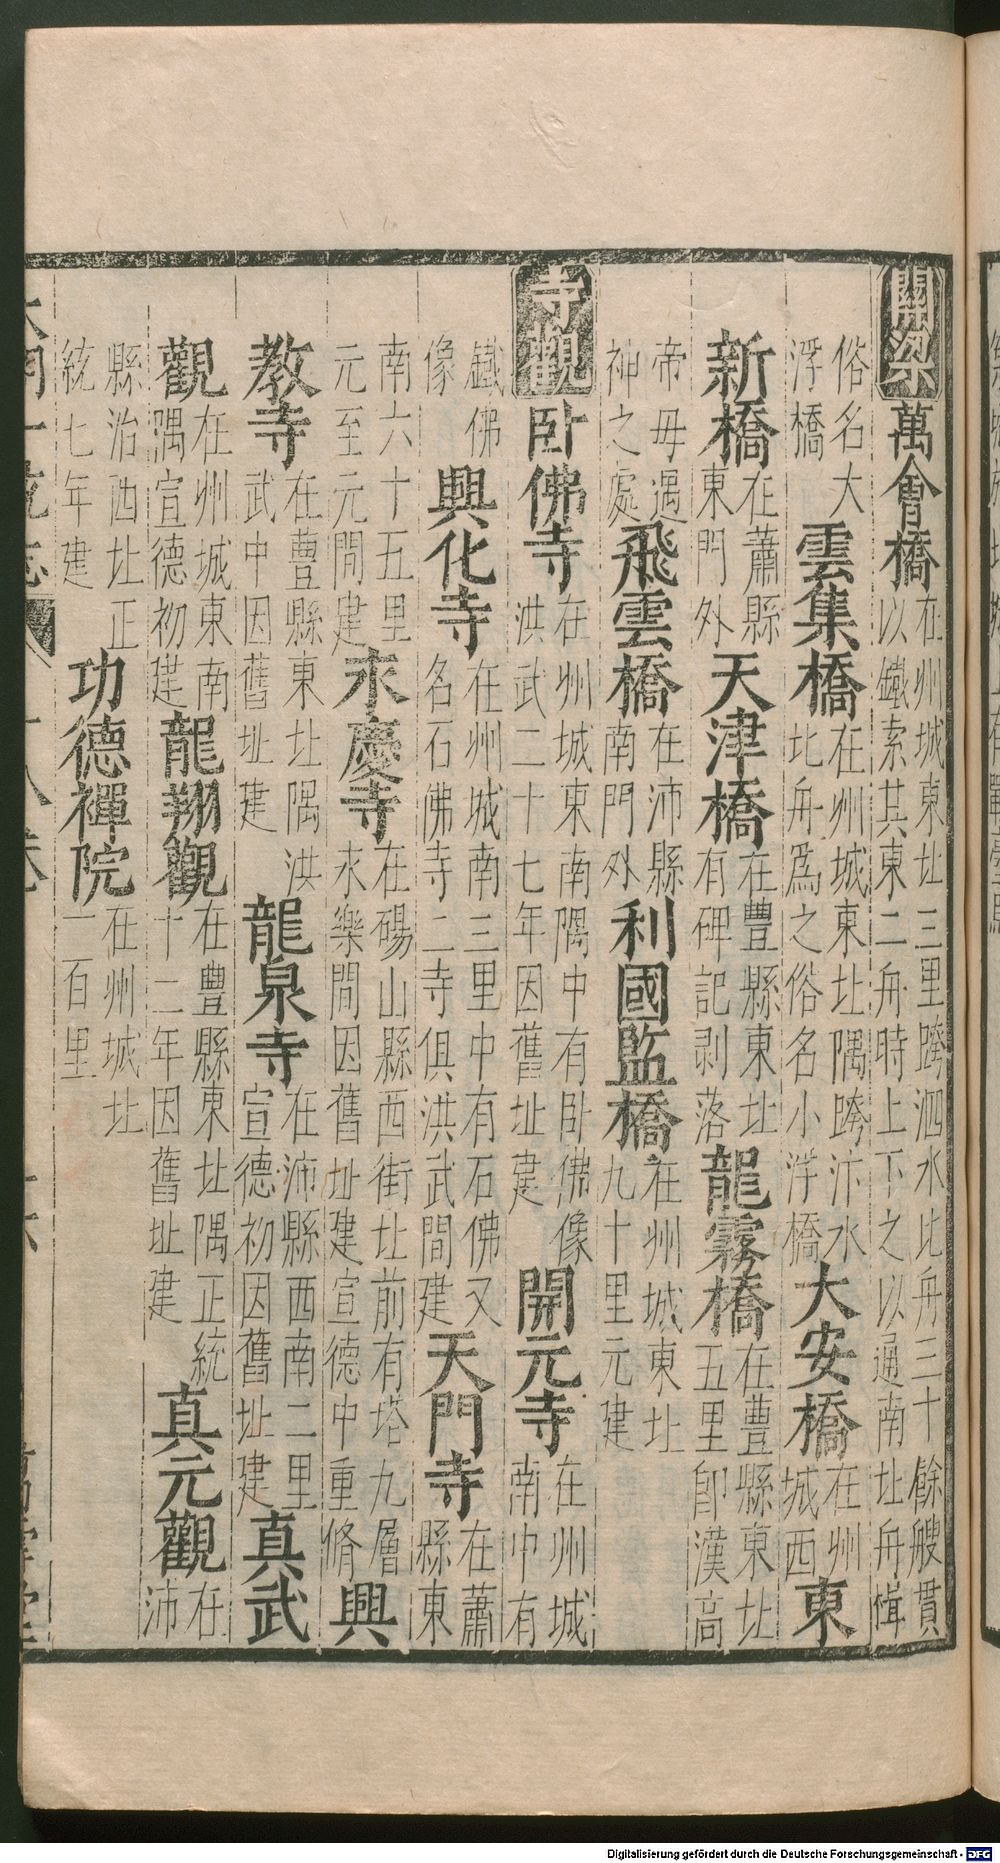 關梁 萬會橋 在州城東北三里跨泗水比舟三十餘艘貫
以鐵索其東二舟時上下之以通南北舟楫
俗名大
浮橋
雲集橋 在州城東北隅跨汴水
比舟爲之俗名小浮橋
大安橋 在州
城西
東
新橋 在蕭縣
東門外
天津橋 在豐縣東北
有碑記剥落
龍霧橋 在豊縣東北
五里卽漢高
帝母遇
神之處
飛雲橋 在沛縣
南門外
利國監橋 在州城東北
九十里元建
寺觀 卧佛寺 在州城東南隅中有卧佛像
洪武二十七年因舊址建
開元寺 在州城
南中有
鐵佛
像
興化寺 在州城南三里中有石佛又
名石佛寺二寺俱洪武間建
天門寺 在蕭
縣東
南六十五里
元至元間建
永慶寺 在碭山縣西街北前有塔九層
永樂間因舊址建宣德中重脩
興
教寺 在豊縣東北隅洪
武中因舊址建
龍泉寺 在沛縣西南二里
宣德初因舊址建
真武
觀 在州城東南
隅宣德初建
龍翔觀 在豊縣東北隅正統
十二年因舊址建
真元觀 在
沛
縣治西北正
統七年建
功德禪院 在州城北
一百里
Digitalisierung gefördert durch die Deutsche Forschungsgemeinschaft - DFG